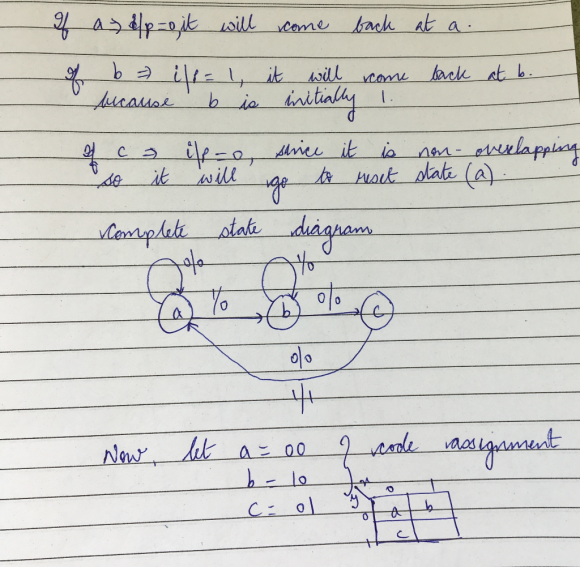 If a ⇒ i/p=0, it will come back at a.
If b ⇒ i/p = 1, it will come back at b.
because b is initially 1.
If c ⇒ i/p=0, since it is non-overlapping
so it will go to reset state (a).
Complete state diagram
0/0 1/0
a 1/0 b 0/0 c
0/0
1/1
Now, let a = 00 } code assignment
b = 10
c = 01
x 0 1
y
0 a b
1 c